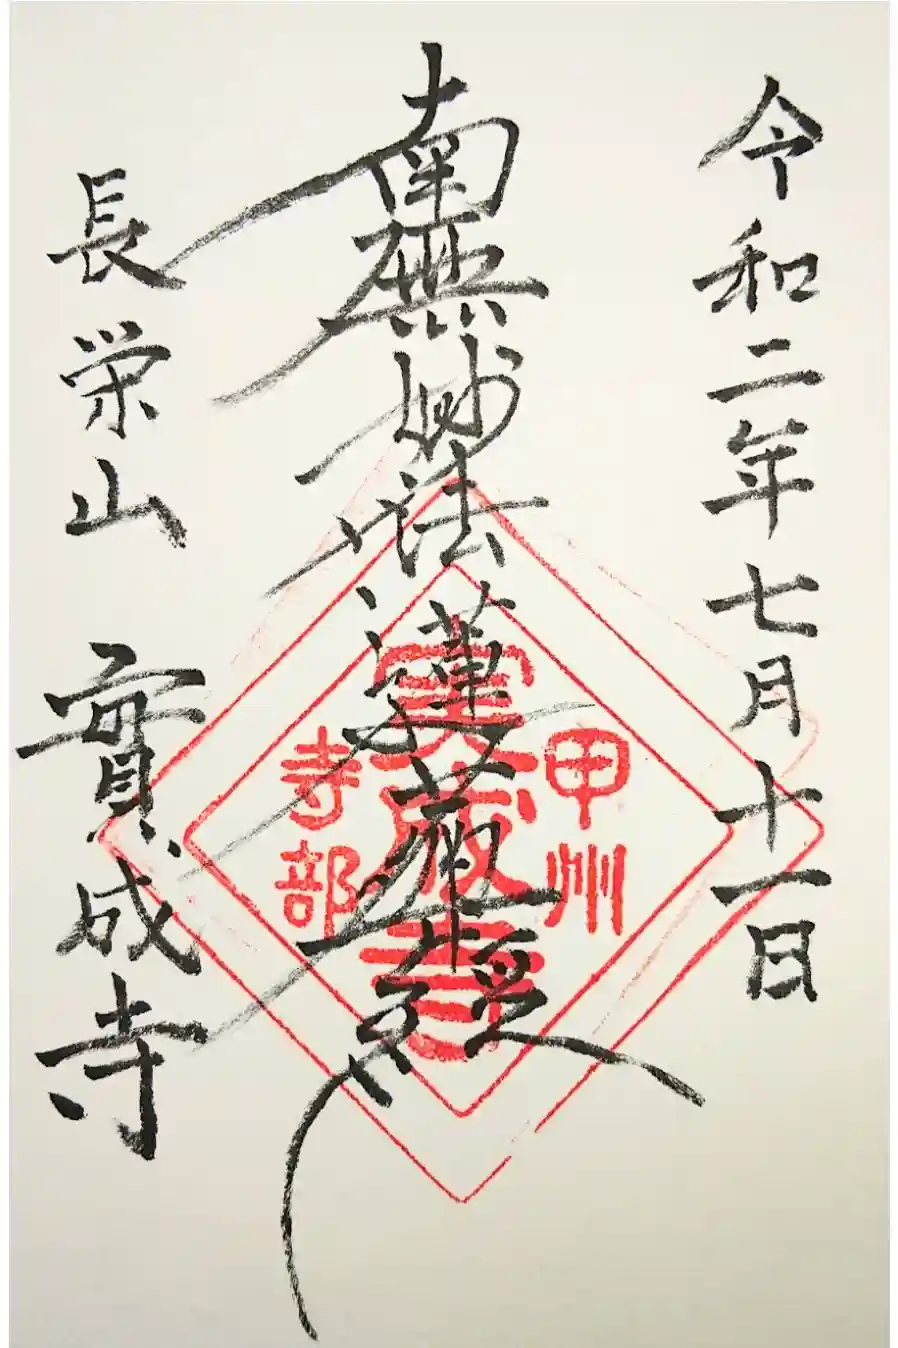 令和二年七月十一日
南無妙法蓮華経
長栄山 實成寺
甲州
實成寺
寺部